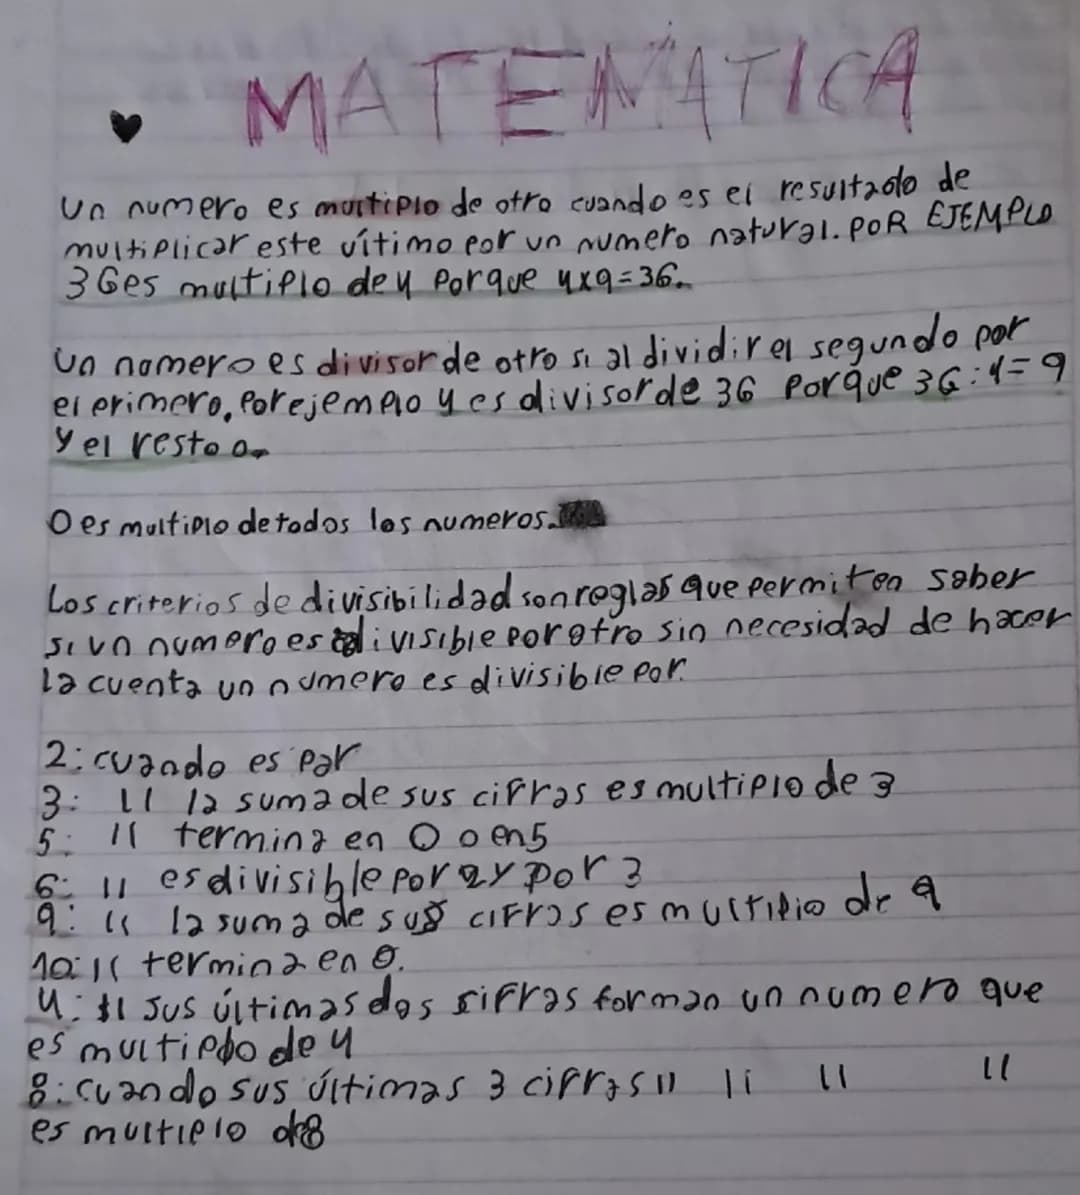 MATEMÁTICA
Un numero es multiplo de otro cuando es el resultado de
multiplicar este último por un numero natural. POR EJEMPLO
36 es multiplo de 4 porque 4x9=36.
Un numero es divisor de otro si al dividir el segundo por
el primero. Por ejemplo 4 es divisor de 36 porque 36:4=9
y el resto 0.
0 es multiplo de todos los numeros.
Los criterios de divisibilidad son reglas que permiten saber
si un numero es divisible por otro sin necesidad de hacer
la cuenta un numero es divisible por.
2: cuando es par
3: 11 la suma de sus cifras es multiplo de 3
5: 11 termina en 0 o en 5
6: 11 es divisible por 2 y por 3
9: 11 la suma de sus cifras es multiplo de 9
10: 11 termina en 0.
4: 11 sus últimas dos sifras forman un numero que
es multiplo de 4
8: cuando sus últimas 3 cifras 11 11 11 11
es multiplo de 8